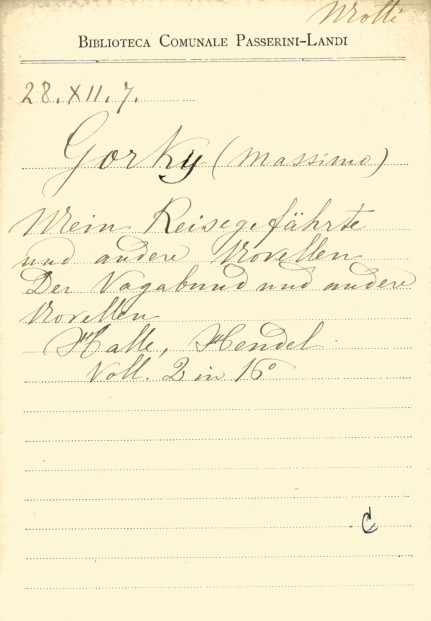 Motti
BIBLIOTECA COMUNALE PASSERINI-LANDI
28.XII.7.
Gorky (Massimo)
Mein Reisegefährte
und andere Novellen
Der Vagabund und andere
Novellen
Halle, Hendel.
Voll. 2 in 16°
C